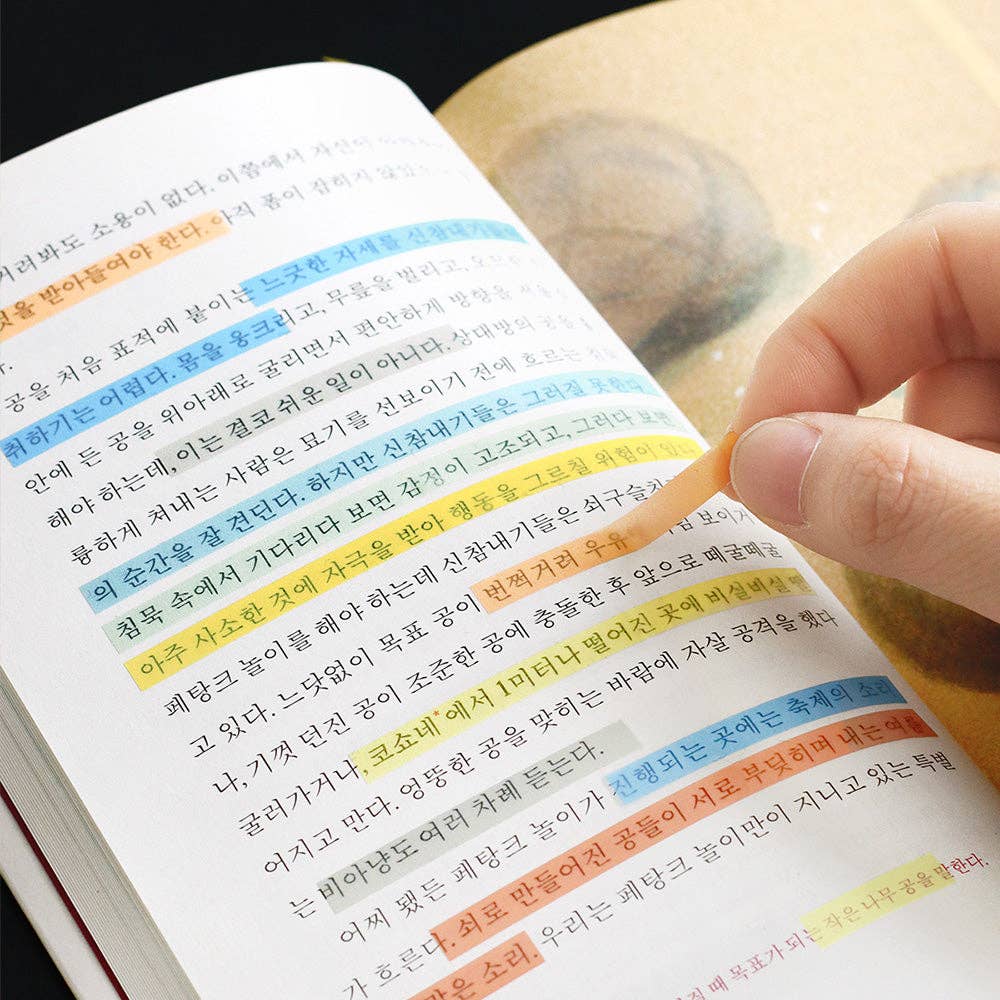 거려봐도 소용이 없다. 이쯤에서 자신이
것을 받아들여야 한다. 아직 폼이 잡히지
공을 처음 표적에 붙이는 느긋한 자세를 신참내기들이
취하기는 어렵다. 몸을 웅크리고, 무릎을 벌리고,
안에 든 공을 위아래로 굴리면서 편안하게 방향을
해야 하는데, 이는 결코 쉬운 일이 아니다. 상대방의 공을
륭하게 쳐내는 사람은 묘기를 선보이기 전에 흐르는
의 순간을 잘 견딘다. 하지만 신참내기들은 그러질 못한다.
침묵 속에서 기다리다 보면 감정이 고조되고, 그러다 보면
아주 사소한 것에 자극을 받아 행동을 그르칠 위험이 있다.
페탕크 놀이를 해야 하는데 신참내기들은
고 있다. 느닷없이 목표 공이 번쩍거려 우유 보이거
나, 기껏 던진 공이 조준한 공에 충돌한 후 앞으로 떼굴떼굴
굴러가거나, 코쇼네*에서 1미터나 떨어진 곳에 비실비실
어지고 만다. 엉뚱한 공을 맞히는 바람에 자살 공격을 했다
는 비아냥도 여러 차례 듣는다.
어찌 됐든 페탕크 놀이가 진행되는 곳에는 축제의 소리
가 흐른다. 쇠로 만들어진 공들이 서로 부딪히며 내는 여름
같은 소리. 우리는 페탕크 놀이만이 지니고 있는 특별
때 목표가 되는 작은 나무 공을 말한다.